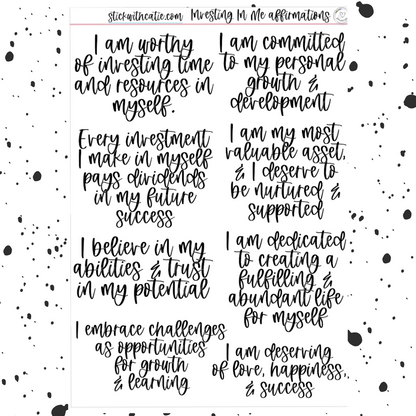 stickwithcatie.com Investing In Me affirmations
I am worthy
of investing time
and resources in
myself.
I am committed
to my personal
growth &
development
Every investment
I make in myself
pays dividends
in my future
success
I am my most
valuable asset,
& I deserve to
be nurtured &
supported
I believe in my
abilities & trust
in my potential
I am dedicated
to creating a
fulfilling &
abundant life
for myself
I embrace challenges
as opportunities
for growth
& learning
I am deserving
of love, happiness,
& success